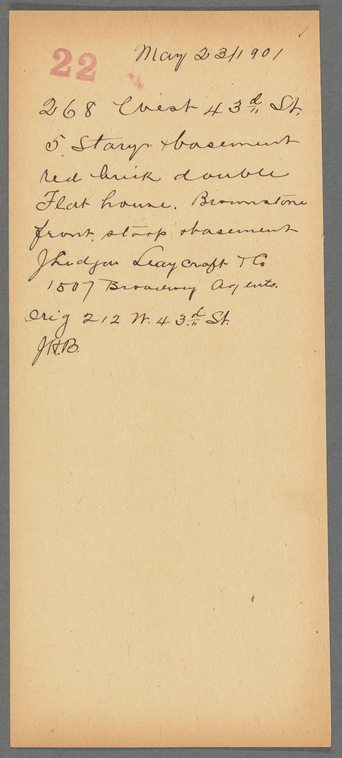 22
May 23/1901
268 West 43d St.
5 Story + basement
red brick double
Flat house. Brownstone
front, stoop + basement
J Edgar Leaycraft + Co
1507 Broadway Agents.
Orig 212 W. 43d St.
J.H.B.